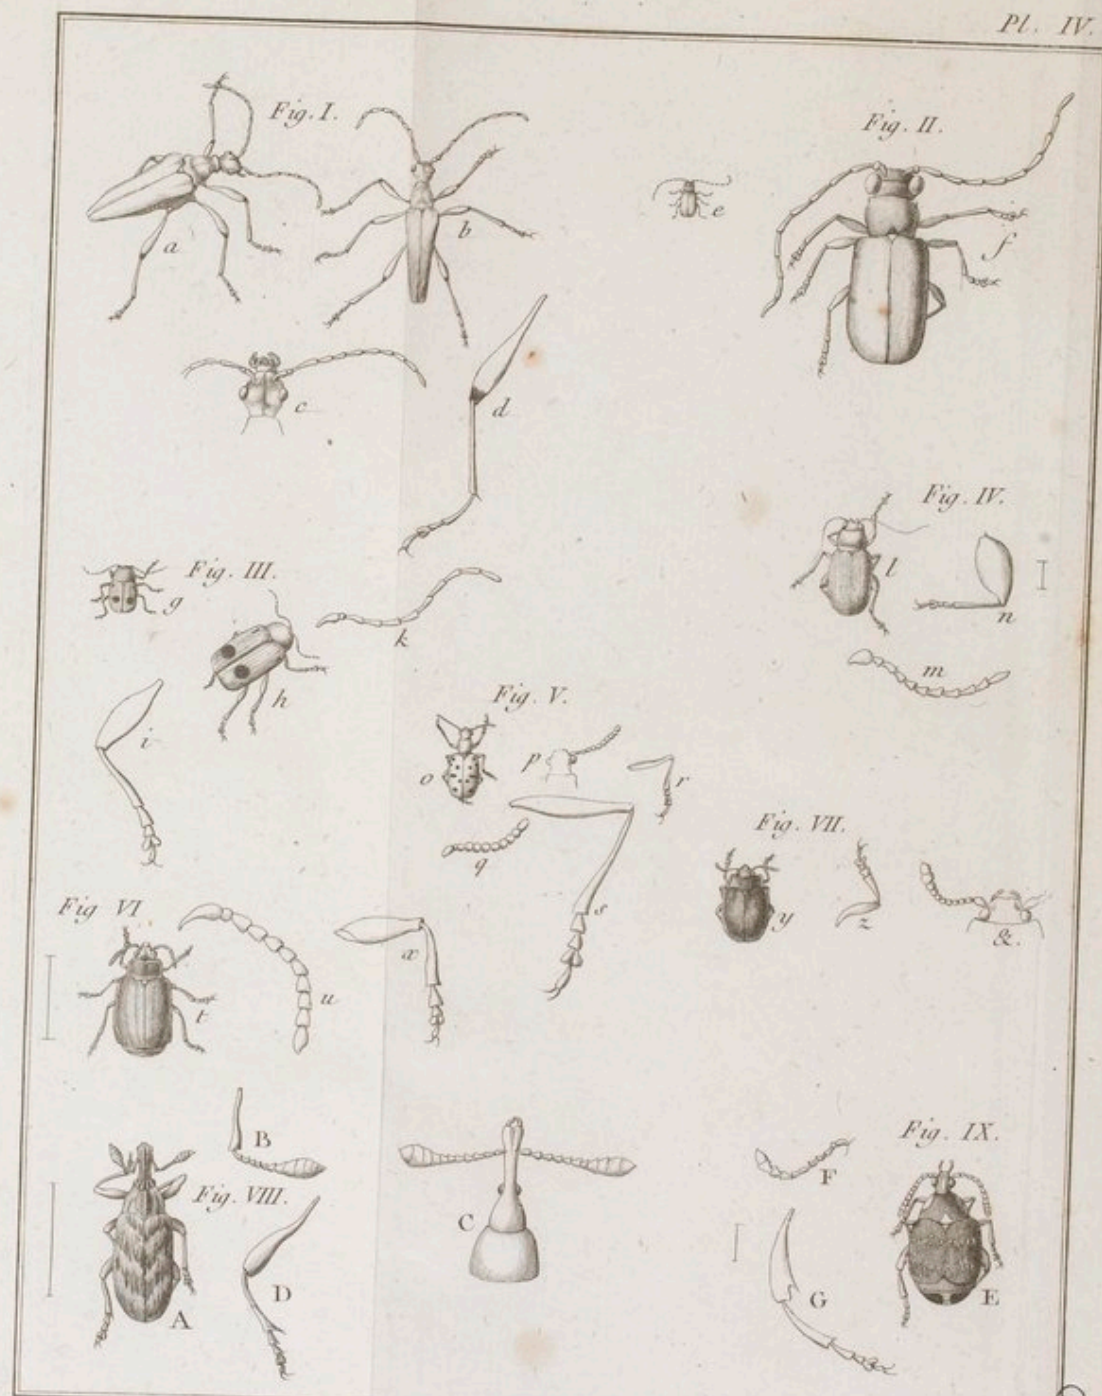 Pl. IV.
Fig. I.
a
b
c
d
Fig. II.
e
f
Fig. III.
g
h
i
k
Fig. IV.
l
n
m
Fig. V.
o
p
q
r
s
Fig VI
t
u
x
Fig. VII.
y
z
&.
Fig. VIII.
A
B
C
D
Fig. IX.
F
G
E